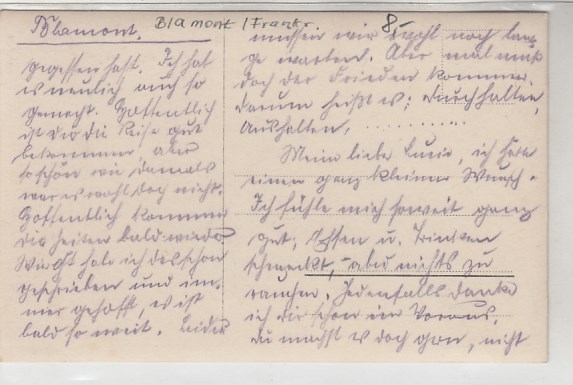 Blamont.
Blamont / Frankr.
8,-
gegessen hast. Ich hab
es neulich auch so
gemacht. Hoffentlich
ist dir die Reise gut
bekommen, aber
so schön wie damals
war es wohl doch nicht.
Hoffentlich kommen
die Zeiten bald wieder
hab ich dir schon
geschrieben und im-
mer gehofft, es ist
bald so weit. Leider
müssen wir wohl noch lan-
ge warten. Aber mal muß
doch der Frieden kommen
darum heißt es: Durchhalten,
Aushalten, ..........
Mein lieber ich habe
einen ganz kleinen Wunsch.
Ich fühle mich soweit ganz
gut, Essen u. Trinken
schmeckt, - aber nichts zu
rauchen. Jedenfalls danke
ich dir schon im Voraus,
du machst es doch gern, nicht